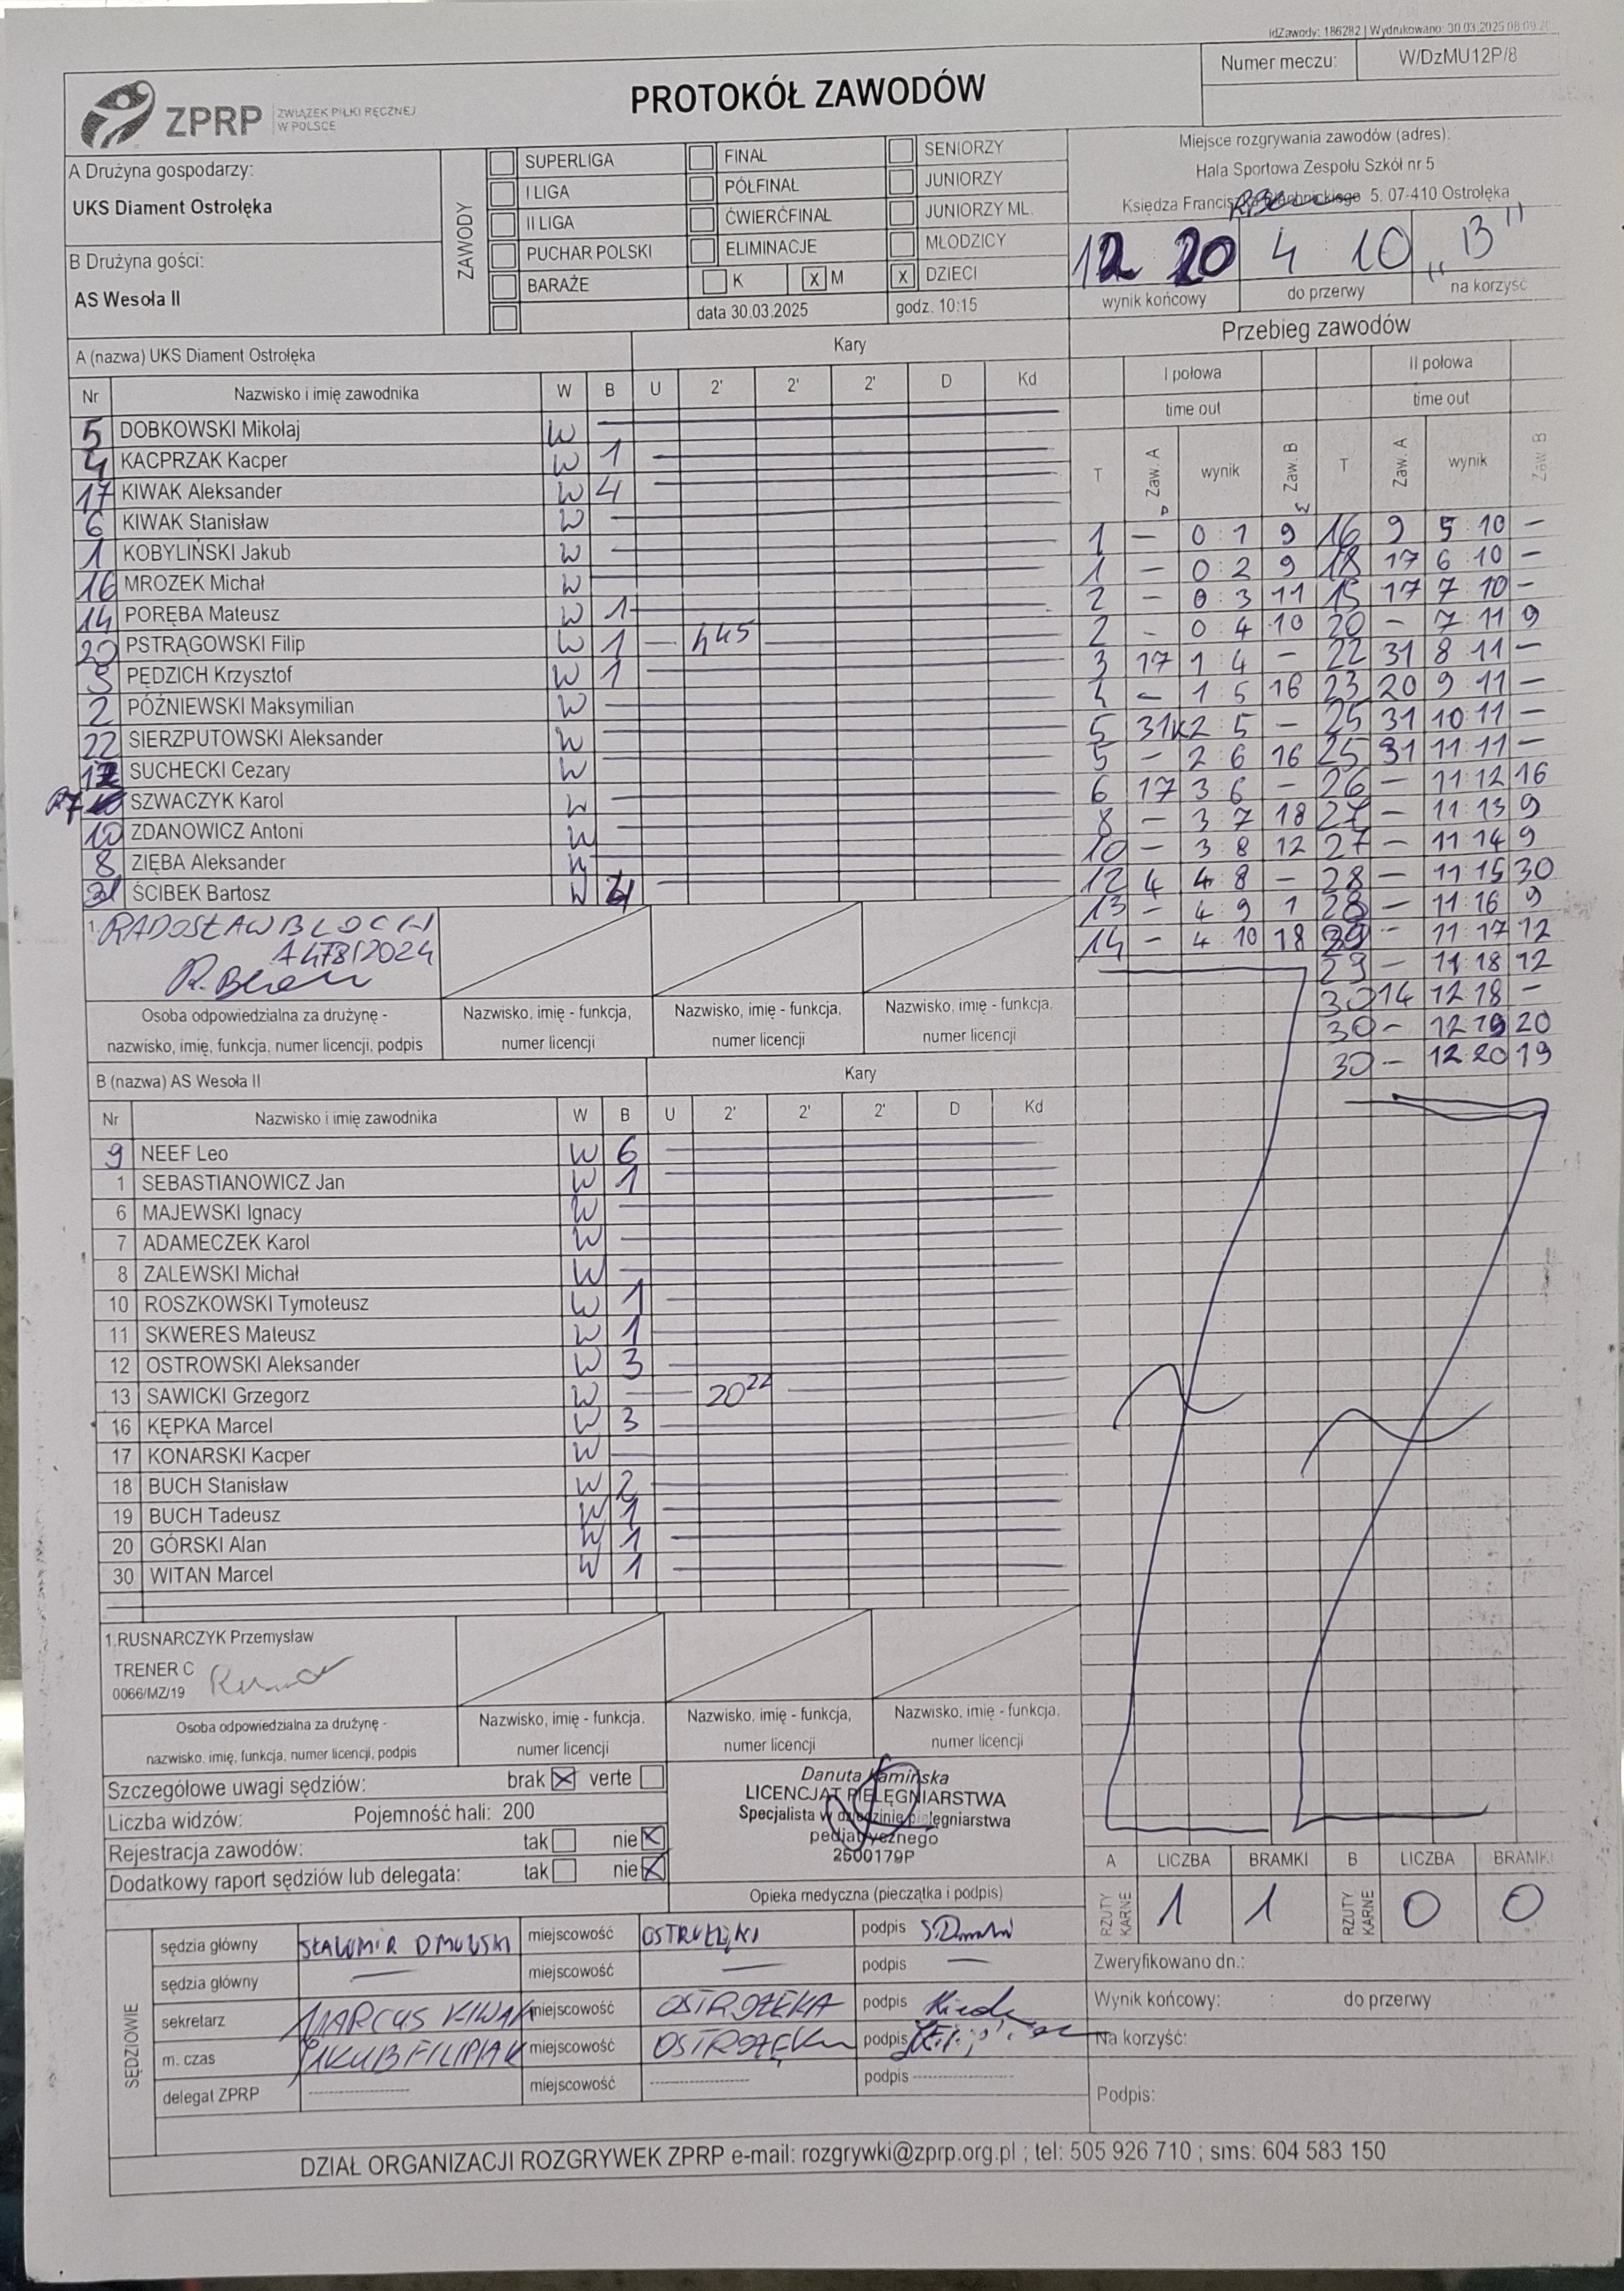 idZawody: 186282 | Wydrukowano: 30.03.2025 08:09
Numer meczu: W/DzMU12P/8
ZPRP ZWIĄZEK PIŁKI RĘCZNEJ W POLSCE
PROTOKÓŁ ZAWODÓW
A Drużyna gospodarzy:
UKS Diament Ostrołęka
B Drużyna gości:
AS Wesoła II
ZAWODY
SUPERLIGA FINAŁ SENIORZY
I LIGA PÓŁFINAŁ JUNIORZY
II LIGA ĆWIERĆFINAŁ JUNIORZY ML.
PUCHAR POLSKI ELIMINACJE MŁODZICY
BARAŻE K X M X DZIECI
data 30.03.2025 godz. 10:15
Miejsce rozgrywania zawodów (adres):
Hala Sportowa Zespołu Szkół nr 5
Księdza Franciszka Blachnickiego 5, 07-410 Ostrołęka
12 20 4 10 „B"
wynik końcowy do przerwy na korzyść
A (nazwa) UKS Diament Ostrołęka Kary
Nr Nazwisko i imię zawodnika W B U 2' 2' 2' D Kd
5 DOBKOWSKI Mikołaj W
4 KACPRZAK Kacper W 1
17 KIWAK Aleksander W 4
6 KIWAK Stanisław W
1 KOBYLIŃSKI Jakub W
16 MROZEK Michał W
14 PORĘBA Mateusz W 1
20 PSTRĄGOWSKI Filip W 1 - 445
9 PĘDZICH Krzysztof W 1
2 PÓŹNIEWSKI Maksymilian W
22 SIERZPUTOWSKI Aleksander W
12 SUCHECKI Cezary W
7 SZWACZYK Karol W
10 ZDANOWICZ Antoni W
8 ZIĘBA Aleksander W
31 ŚCIBEK Bartosz W 4
1. RADOSŁAW BLOCH
A478/2024
Osoba odpowiedzialna za drużynę -
nazwisko, imię, funkcja, numer licencji, podpis
Nazwisko, imię - funkcja,
numer licencji
Nazwisko, imię - funkcja,
numer licencji
Nazwisko, imię - funkcja,
numer licencji
B (nazwa) AS Wesoła II Kary
Nr Nazwisko i imię zawodnika W B U 2' 2' 2' D Kd
9 NEEF Leo W 6
1 SEBASTIANOWICZ Jan W 1
6 MAJEWSKI Ignacy W
7 ADAMECZEK Karol W
8 ZALEWSKI Michał W
10 ROSZKOWSKI Tymoteusz W 1
11 SKWERES Mateusz W 1
12 OSTROWSKI Aleksander W 3
13 SAWICKI Grzegorz W - 20 22
16 KĘPKA Marcel W 3
17 KONARSKI Kacper W
18 BUCH Stanisław W 2
19 BUCH Tadeusz W 1
20 GÓRSKI Alan W 1
30 WITAN Marcel W 1
1.RUSNARCZYK Przemysław
TRENER C
0066/MZ/19
Osoba odpowiedzialna za drużynę -
nazwisko, imię, funkcja, numer licencji, podpis
Nazwisko, imię - funkcja,
numer licencji
Nazwisko, imię - funkcja,
numer licencji
Nazwisko, imię - funkcja,
numer licencji
Przebieg zawodów
I połowa II połowa
time out time out
T Zaw. A wynik Zaw. B T Zaw. A wynik Zaw. B
1 - 0:1 9 16 9 5:10 -
1 - 0:2 9 18 17 6:10 -
2 - 0:3 11 19 17 7:10 -
2 - 0:4 10 20 - 7:11 9
3 17 1:4 - 22 31 8:11 -
4 - 1:5 16 23 20 9:11 -
5 31K 2:5 - 25 31 10:11 -
5 - 2:6 16 25 31 11:11 -
6 17 3:6 - 26 - 11:12 16
8 - 3:7 18 27 - 11:13 9
10 - 3:8 12 27 - 11:14 9
12 4 4:8 - 28 - 11:15 30
13 - 4:9 1 28 - 11:16 9
14 - 4:10 18 29 - 11:17 12
29 - 11:18 12
30 14 12:18 -
30 - 12:19 20
30 - 12:20 19
Szczegółowe uwagi sędziów: brak X verte
Liczba widzów: Pojemność hali: 200
Rejestracja zawodów: tak nie X
Dodatkowy raport sędziów lub delegata: tak nie X
Danuta Kamińska
LICENCJAT PIELĘGNIARSTWA
Specjalista w dziedzinie pielęgniarstwa
pediatrycznego
2600179P
Opieka medyczna (pieczątka i podpis)
A LICZBA BRAMKI B LICZBA BRAMKI
RZUTY KARNE 1 1 RZUTY KARNE 0 0
SĘDZIOWIE
sędzia główny SŁAWOMIR DMOWSKI miejscowość OSTROŁĘKA podpis
sędzia główny - miejscowość - podpis -
sekretarz MARCUS KIWAK miejscowość OSTROŁĘKA podpis
m. czas JAKUB FILIPIAK miejscowość OSTROŁĘKA podpis
delegat ZPRP miejscowość podpis
Zweryfikowano dn.:
Wynik końcowy: : do przerwy
Na korzyść:
Podpis:
DZIAŁ ORGANIZACJI ROZGRYWEK ZPRP e-mail: rozgrywki@zprp.org.pl ; tel: 505 926 710 ; sms: 604 583 150